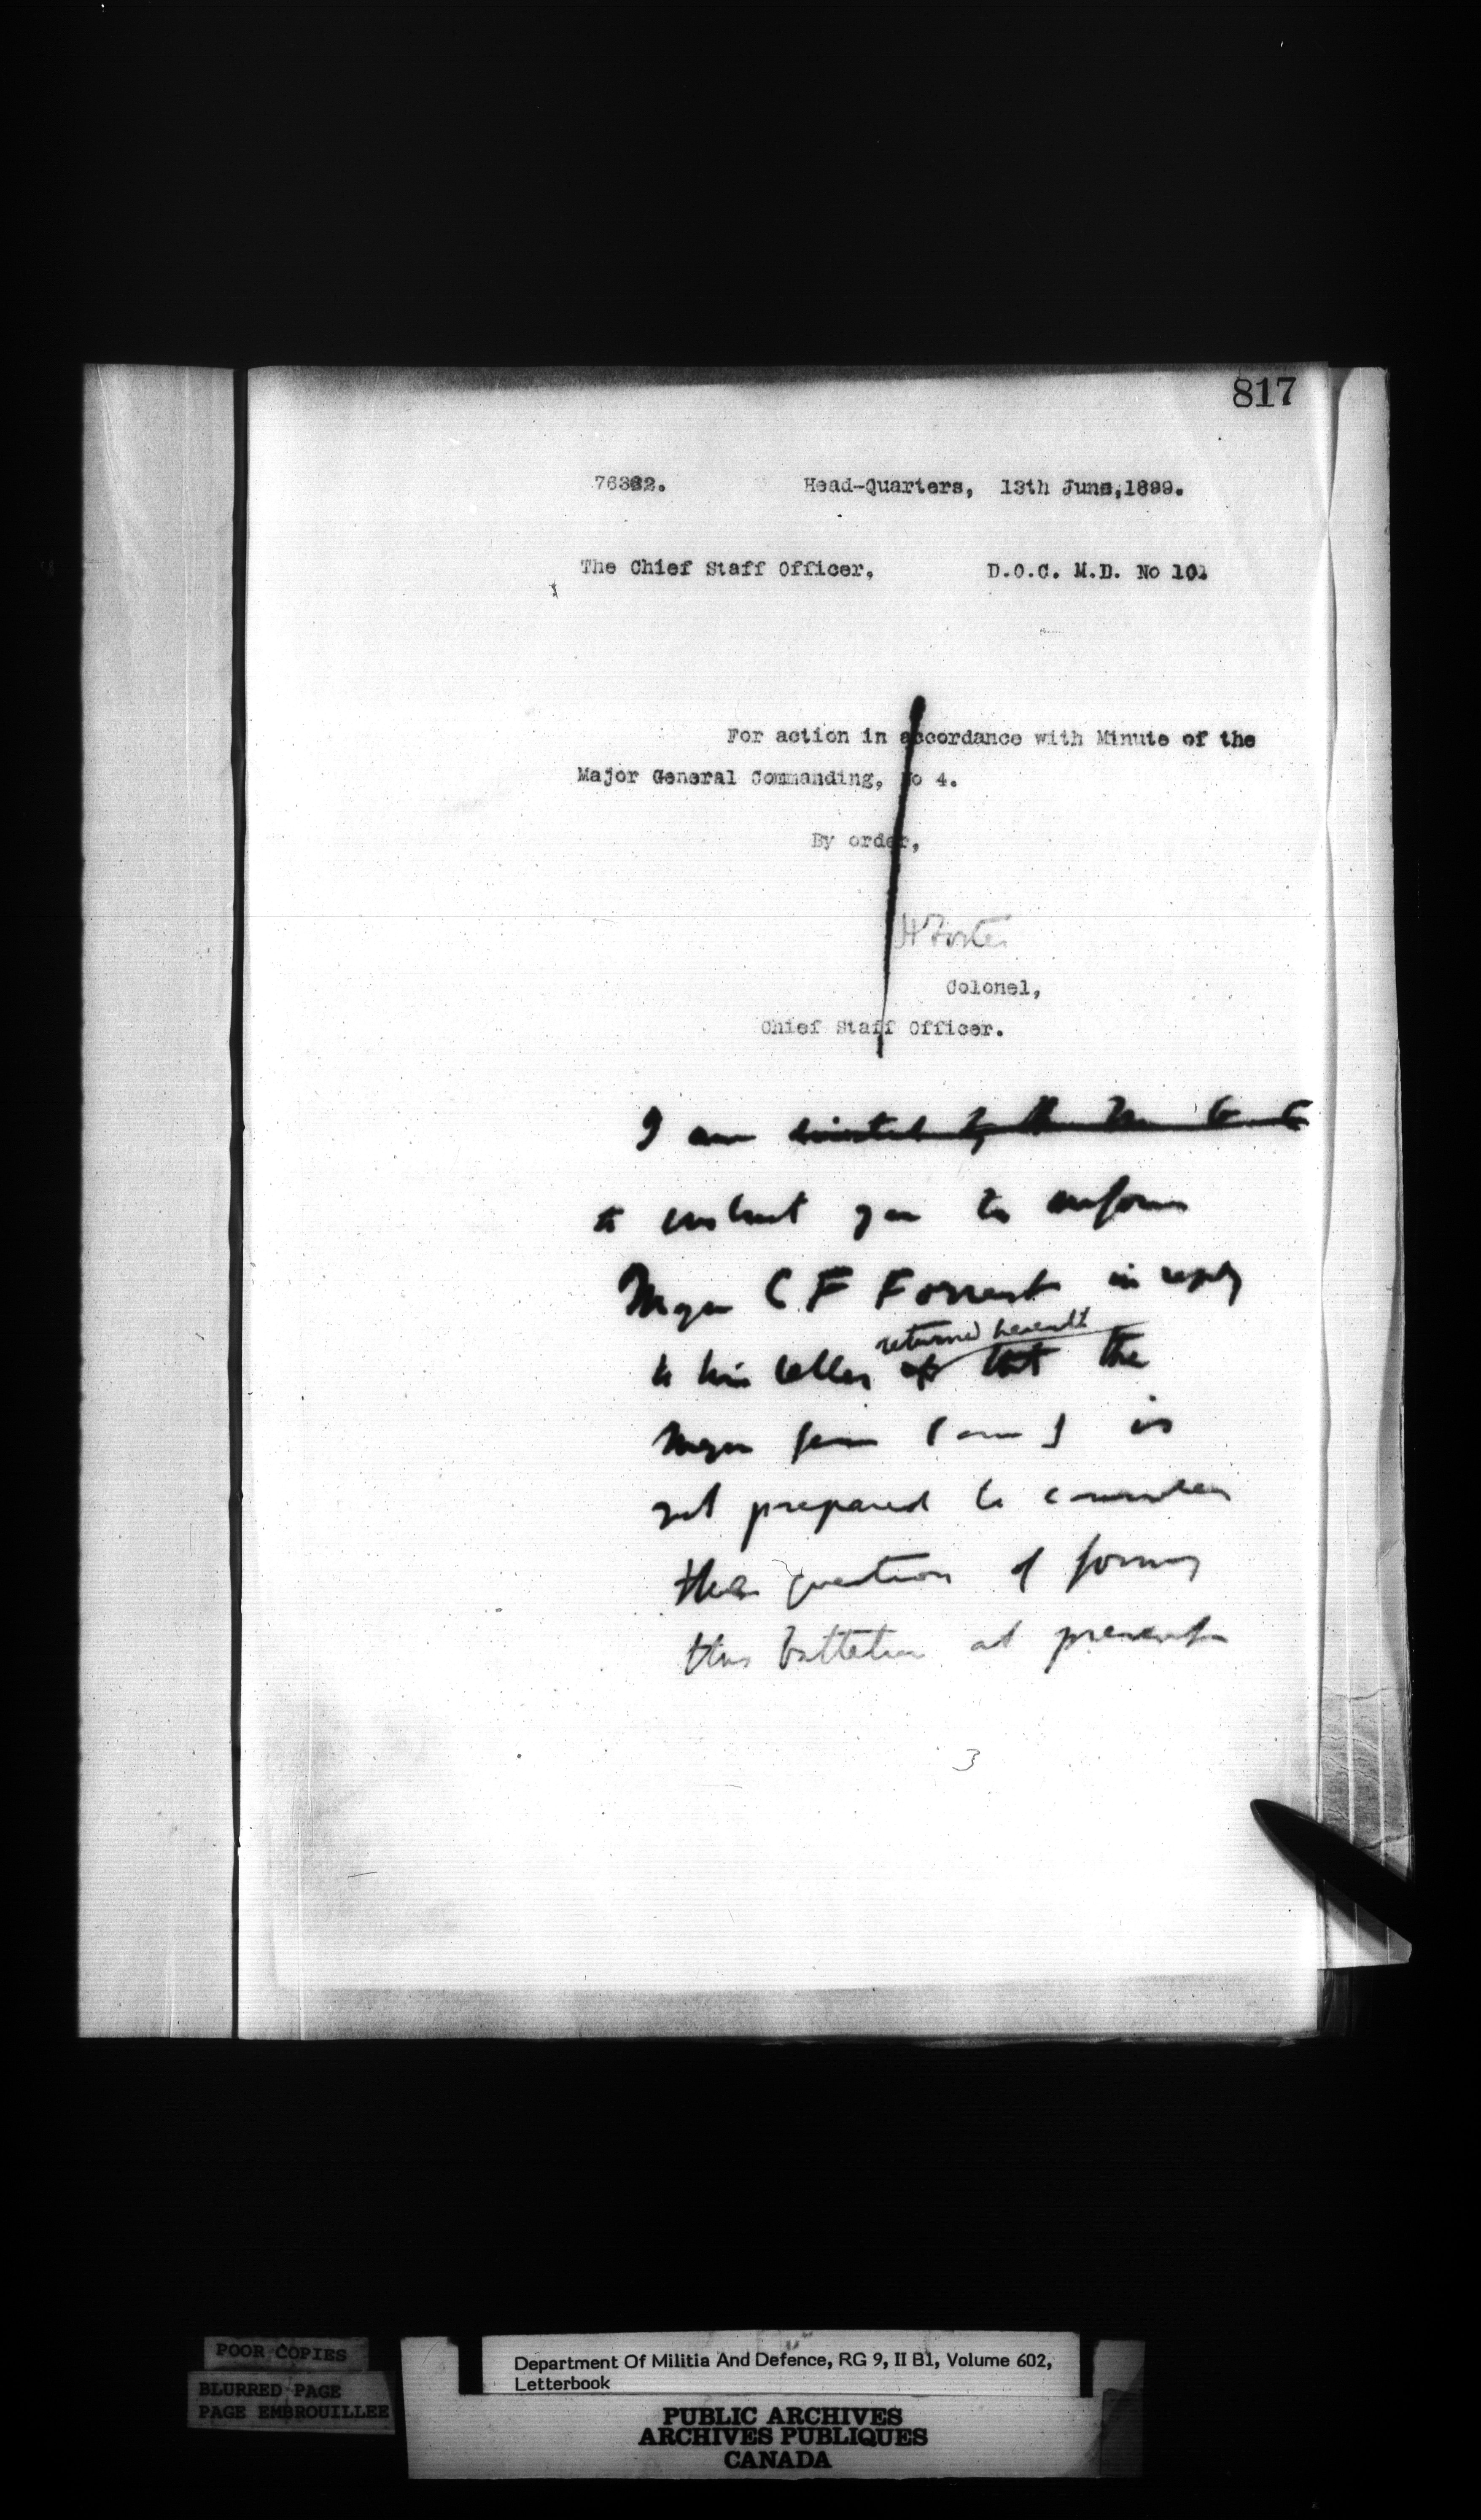 817
76362. Head-Quarters, 13th June, 1899.
The Chief Staff Officer, D.O.C. M.D. No 10.
For action in accordance with Minute of the
Major General Commanding, No 4.
By order,
H Foster
Colonel,
Chief Staff Officer.
I am directed by the
to instruct you to inform
Major C F Forrest in reply
returned herewith
to his letter that the
Major Genl Comg is
not prepared to consider
the question of forming
this battalion at present
3
POOR COPIES
BLURRED PAGE
PAGE EMBROUILLEE
Department Of Militia And Defence, RG 9, II B1, Volume 602,
Letterbook
PUBLIC ARCHIVES
ARCHIVES PUBLIQUES
CANADA